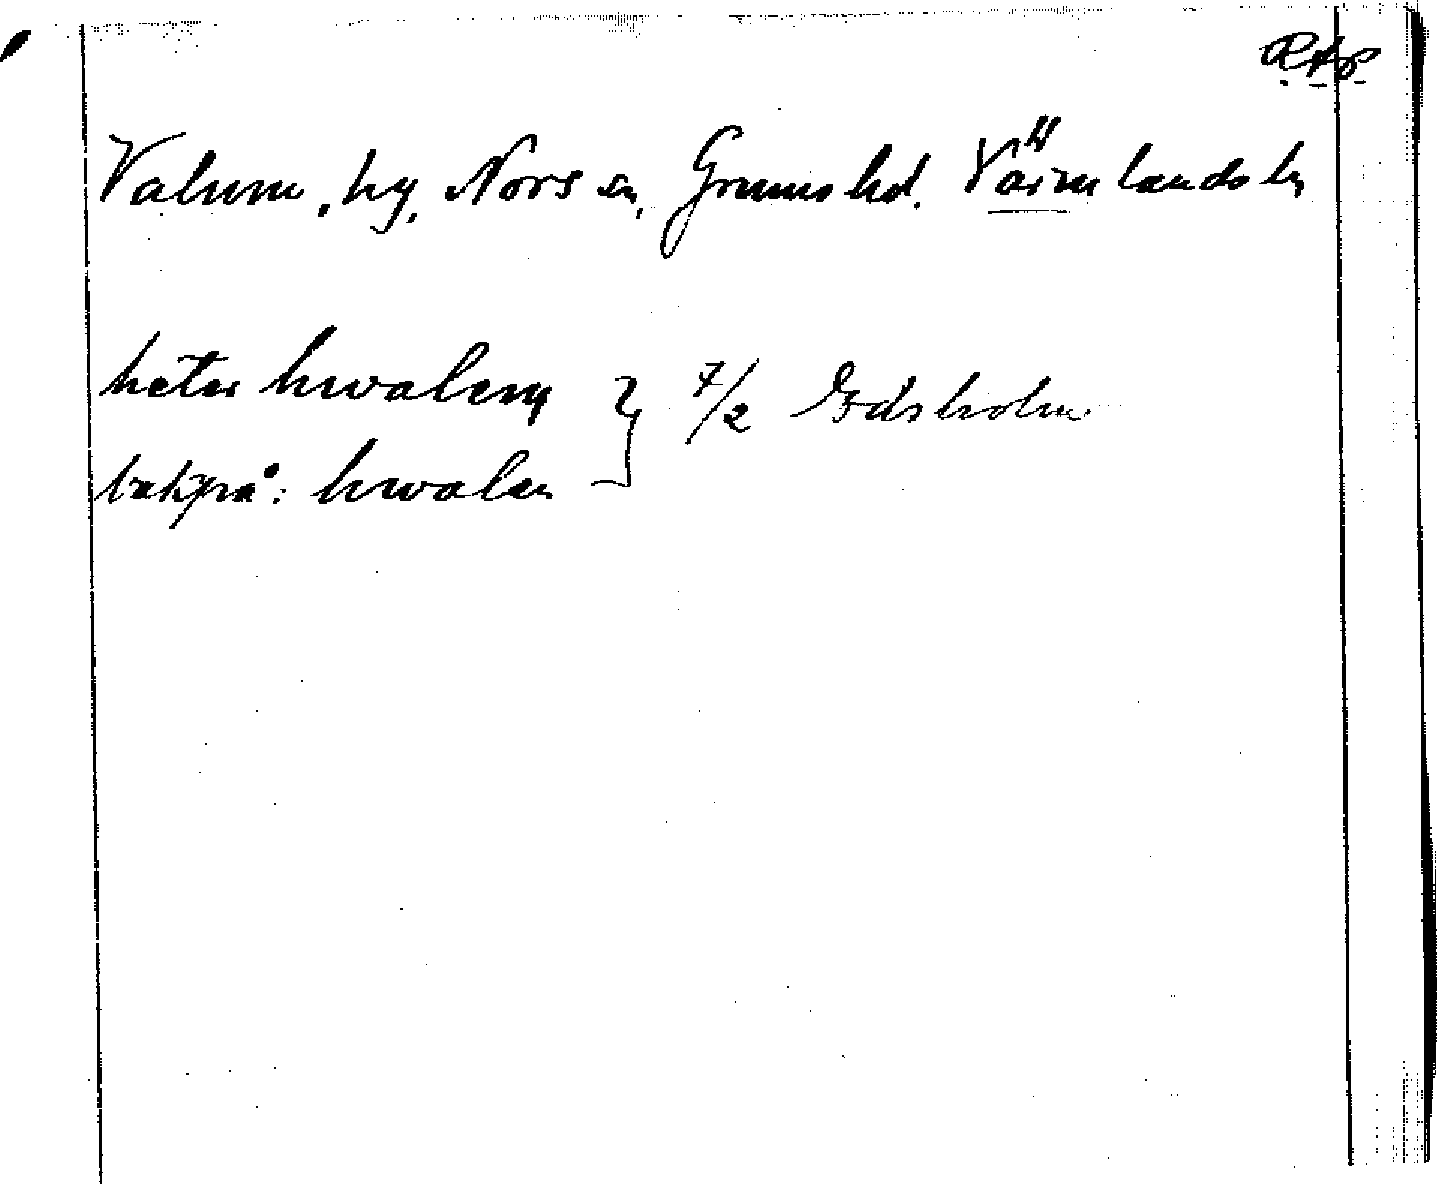 RAp
Valum, by, Nors sn, Grums hd. Värmlands ln
heter hwalem } 7/2 Edsholm
bakpå: hwalen